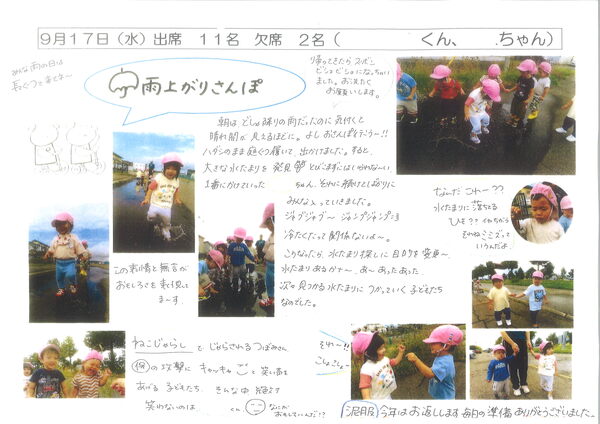 9月17日(水) 出席 11名 欠席 2名( くん、 ちゃん)
みんな雨の日は
長ぐつで来てネー
雨上がりさんぽ
帰ってきたらズボン
ビショビショになっちゃい
ました。お洗たく
お願いします。
朝はどしゃ降りの雨だったのに気付くと
晴れ間が見えるほどに。よしおさんぽ行こうー!!
ハダシのまま長ぐつ履いて出かけました。すると、
大きな水たまりを発見 とびこまずにはいられな~い
1番にかけていった ちゃん、それに続けとばかりに
みんな入っていきました。
ジャブジャブ~ ジャンプジャンプ
冷たくたって関係ないよ~。
こうなったら、水たまり探しに目的を変更~
水たまりあるかナ~、あ~あったあった
次々見つかる水たまりにつかっていく子どもたち
なのでした。
なんだこれー??
水たまりに落ちてる
ひも??イヤちがう
それねミミズって
いうんだよ。
この表情と無言が
おもしろさを表現して
ま~す。
ねこじゃらしでじゃらされるつぼみさん。
の攻撃にキャッキャッと笑い声を
あげる子どもたち。そんな中
笑わないのは くん なにが
おもしろいんだ!?
それ~!!
こしょこしょ~
泥服 今年はお返しします 毎日の準備ありがとうございました。